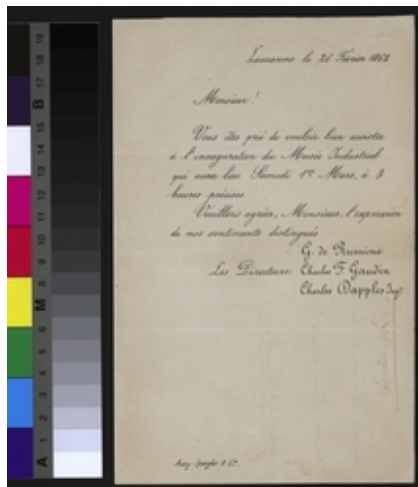 Lausanne le 26 Février 1862
Monsieur!
Vous êtes prié de vouloir bien assister
à l'inauguration du Musée Industriel
qui aura lieu Samedi 1er Mars, à 3
heures précises.
Veuillez agréer, Monsieur, l'expression
de nos sentiments distingués
G. de Rumine
Les Directeurs: Charles T. Gaudin
Charles Dapples Ingr
19
18
17
B
16
15
14
13
12
11
10
9
8
M
7
6
5
4
3
2
1
A